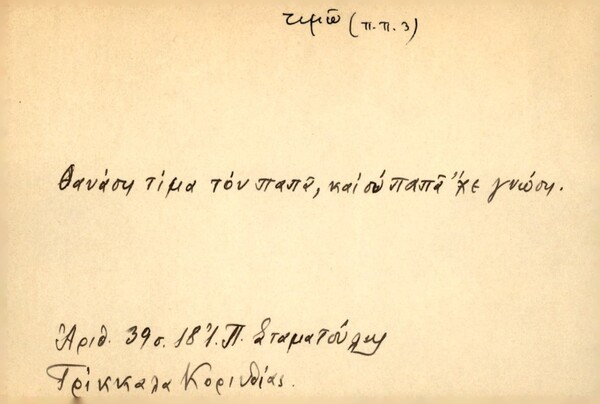 τιμῶ (π.π. 3)
Θανάση τίμα τόν παπᾶ, καί σύ παπᾶ ἔχε γνώση.
Ἀριθ. 39 σ. 18 Ἰ. Π. Σταματούλης
Τρίκκαλα Κορινθίας.